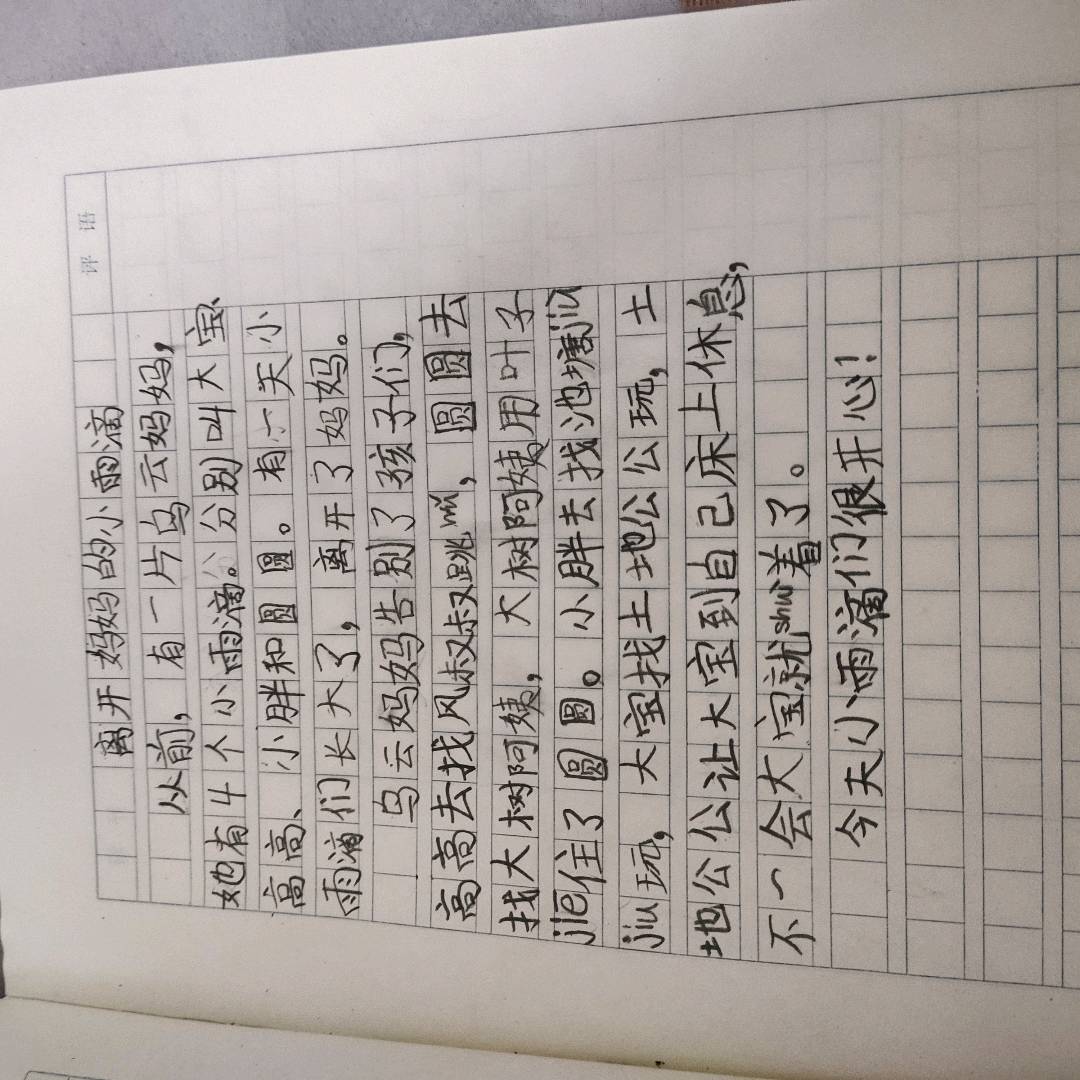 评 语
离开妈妈的小雨滴
从前，有一片乌云妈妈，
她有4个小雨滴。分别叫大宝、
高高、小胖和圆圆。有一天小
雨滴们长大了，离开了妈妈。
乌云妈妈告别了孩子们，
高高去找风叔叔跳wǔ，圆圆去
找大树阿姨，大树阿姨用叶子
jiē住了圆圆。小胖去找池塘jiù
jiu玩，大宝找土地公公玩，土
地公公让大宝到自己床上休息，
不一会大宝就shuì着了。
今天小雨滴们很开心！